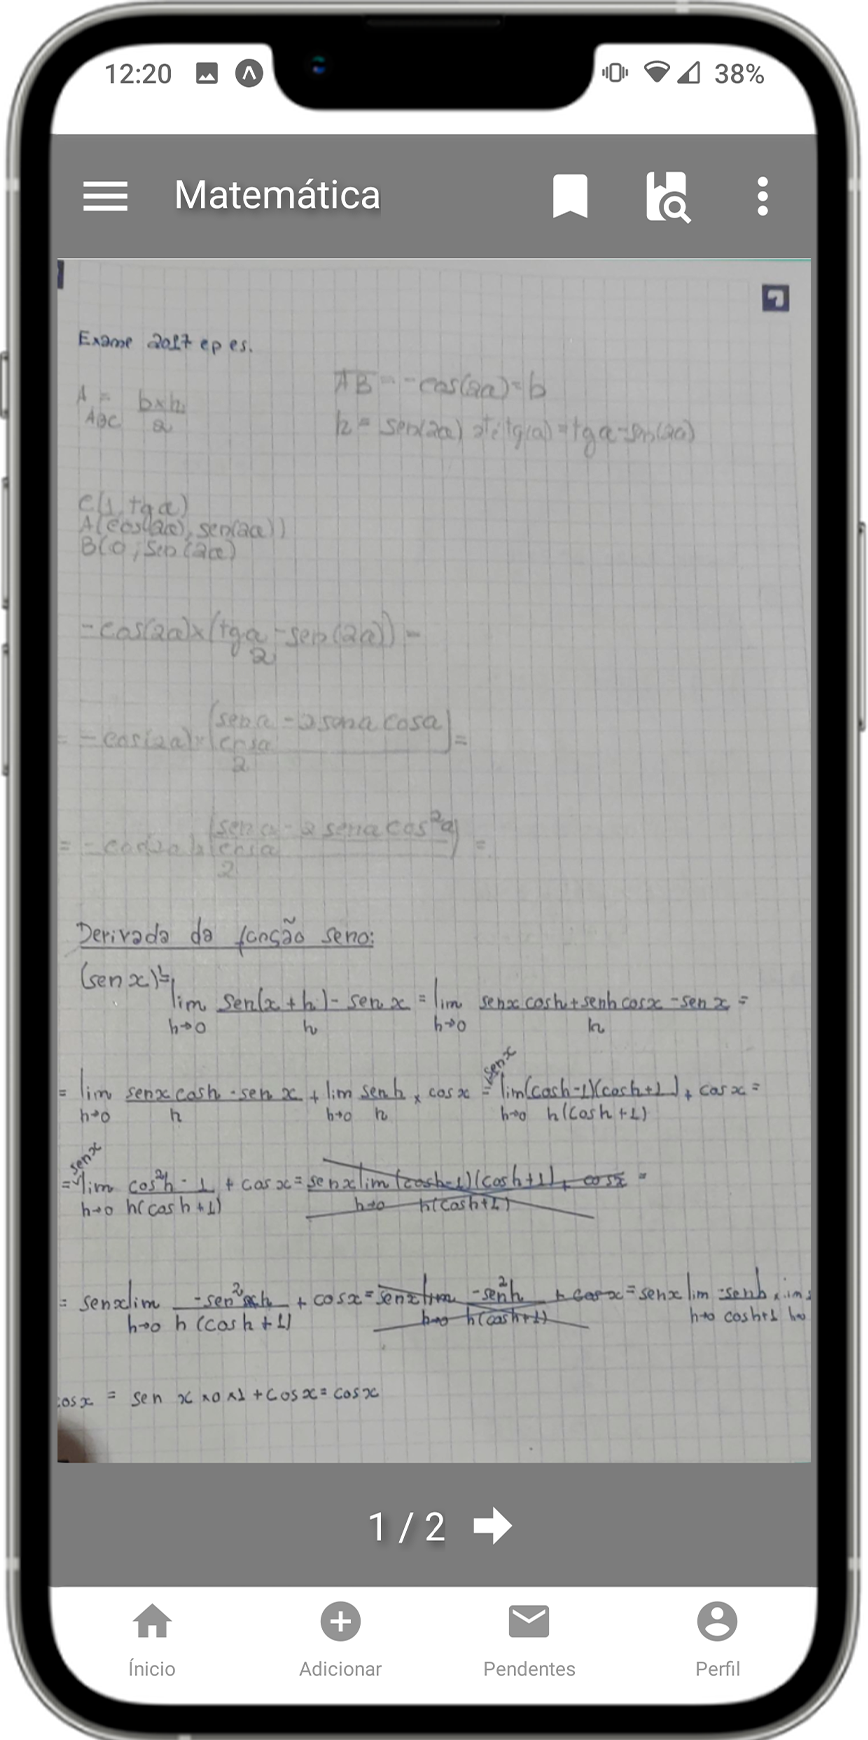 12:20 38%
Matemática
Exame 2017 ep es.
A ABC = b×h / 2
AB = -cos(2α) = b
h = sen(2α) até tg(α) = tgα-sen(2α)
C(1, tgα)
A(cos(2α), sen(2α))
B(0; sen(2α)
-cos(2α)×(tgα-sen(2α)) / 2 =
= -cos(2α)×(senα / cosα - 2senα cosα) / 2 =
= -cos(2α)×(senα - 2senα cos²α / cosα) / 2 =
Derivada da função seno:
(sen x)'=
lim h→0 sen(x+h)-sen x / h = lim h→0 senx cosh+senh cosx -sen x / h =
= lim h→0 senx cosh -sen x / h + lim h→0 senh / h × cosx = senx lim h→0 (cosh-1)(cosh+1) / h(cosh+1) + cosx =
= senx lim h→0 cos²h - 1 / h(cosh+1) + cosx = senx lim h→0 (cosh-1)(cosh+1) / h(cosh+1) + cosx =
= senx lim h→0 -sen²h / h(cosh+1) + cosx = senx lim h→0 -sen²h / h(cosh+1) + cosx = senx lim h→0 -senh / cosh+1 × lim h→0
cosx = sen x × 0 × 1 + cosx = cosx
1 / 2
Ínicio Adicionar Pendentes Perfil